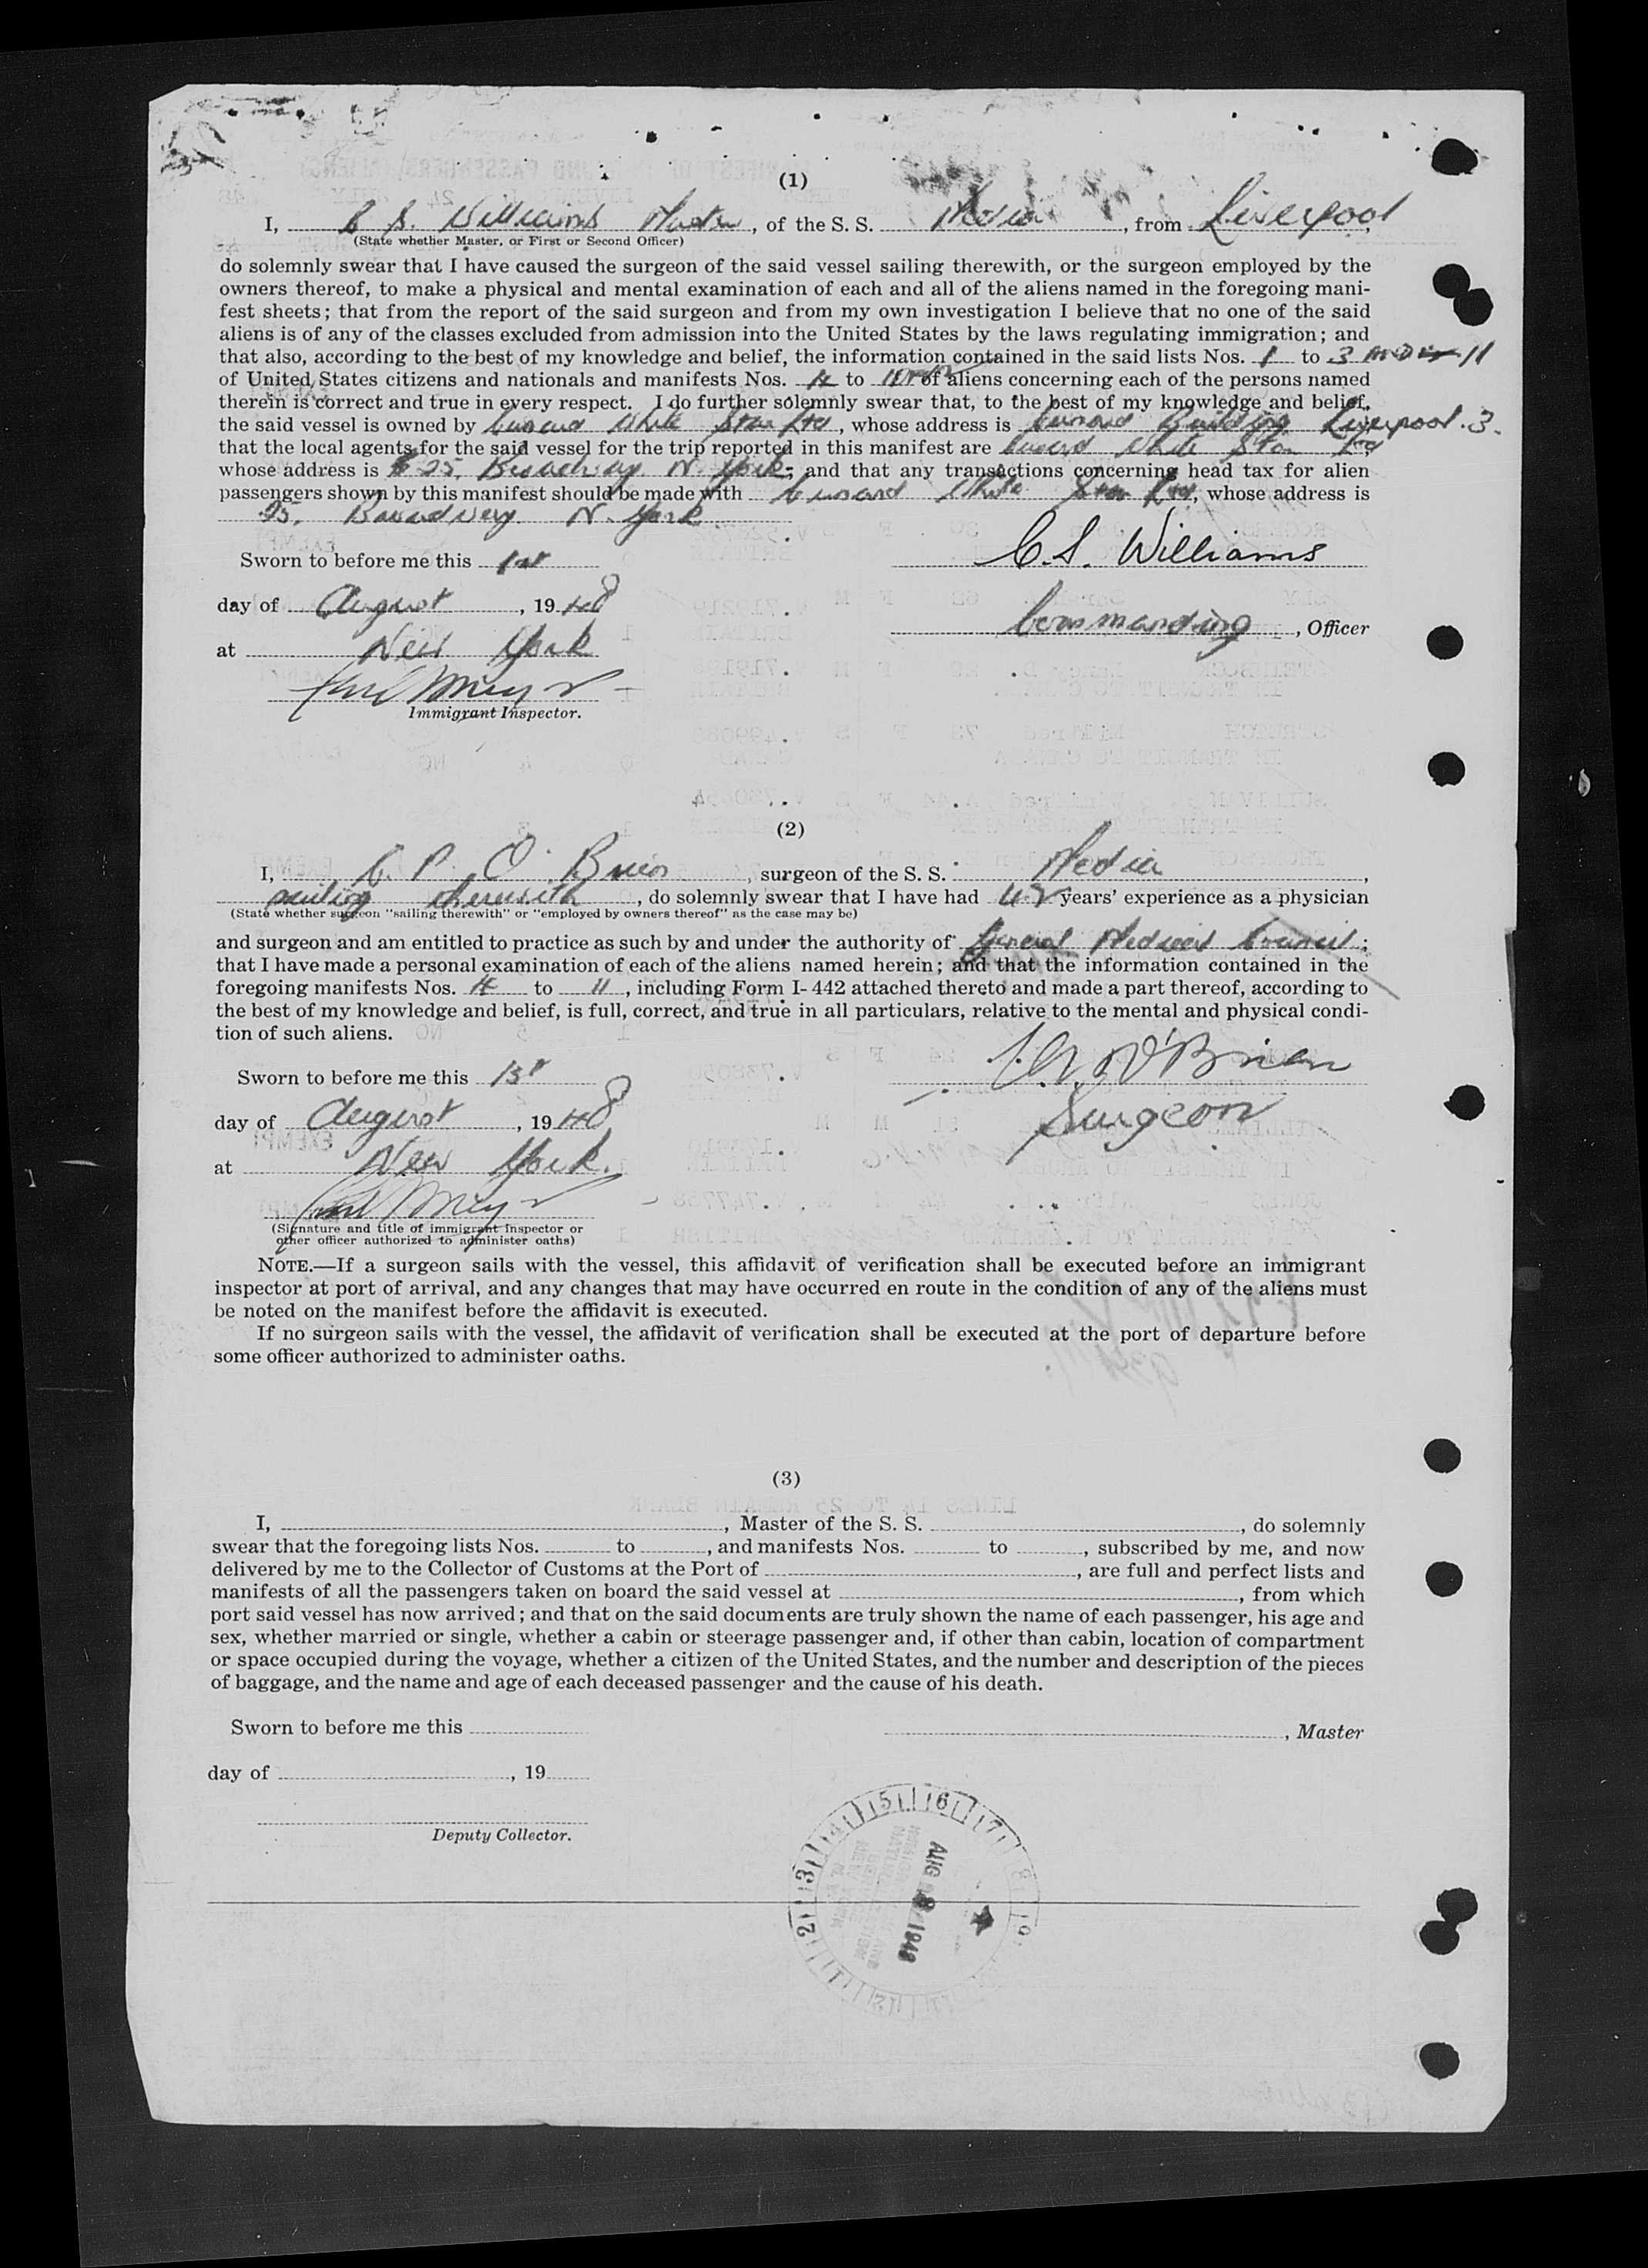 (1)
I, C. S. Williams Master, of the S. S. Media, from Liverpool,
(State whether Master, or First or Second Officer)
do solemnly swear that I have caused the surgeon of the said vessel sailing therewith, or the surgeon employed by the
owners thereof, to make a physical and mental examination of each and all of the aliens named in the foregoing mani-
fest sheets; that from the report of the said surgeon and from my own investigation I believe that no one of the said
aliens is of any of the classes excluded from admission into the United States by the laws regulating immigration; and
that also, according to the best of my knowledge and belief, the information contained in the said lists Nos. 1 to 3 11
of United States citizens and nationals and manifests Nos. 4 to of aliens concerning each of the persons named
therein is correct and true in every respect. I do further solemnly swear that, to the best of my knowledge and belief,
the said vessel is owned by Cunard White Star Ltd, whose address is Cunard Building Liverpool. 3.
that the local agents for the said vessel for the trip reported in this manifest are Cunard White Star Ltd
whose address is 25. Broadway N. York; and that any transactions concerning head tax for alien
passengers shown by this manifest should be made with Cunard White Star Ltd., whose address is
25. Broadway. N. York
Sworn to before me this 1st
C. S. Williams
day of August, 1948
Commanding, Officer
at New York
Immigrant Inspector.
(2)
I, C. P. O'Brien, surgeon of the S. S. Media,
sailing therewith, do solemnly swear that I have had 42 years' experience as a physician
(State whether surgeon "sailing therewith" or "employed by owners thereof" as the case may be)
and surgeon and am entitled to practice as such by and under the authority of General Medical Council;
that I have made a personal examination of each of the aliens named herein; and that the information contained in the
foregoing manifests Nos. 4 to 11, including Form I-442 attached thereto and made a part thereof, according to
the best of my knowledge and belief, is full, correct, and true in all particulars, relative to the mental and physical condi-
tion of such aliens.
O'Brien
Sworn to before me this 1st
Surgeon
day of August, 1948
at New York.
(Signature and title of immigrant inspector or
other officer authorized to administer oaths)
NOTE.—If a surgeon sails with the vessel, this affidavit of verification shall be executed before an immigrant
inspector at port of arrival, and any changes that may have occurred en route in the condition of any of the aliens must
be noted on the manifest before the affidavit is executed.
If no surgeon sails with the vessel, the affidavit of verification shall be executed at the port of departure before
some officer authorized to administer oaths.
(3)
I, , Master of the S. S. , do solemnly
swear that the foregoing lists Nos. to , and manifests Nos. to , subscribed by me, and now
delivered by me to the Collector of Customs at the Port of , are full and perfect lists and
manifests of all the passengers taken on board the said vessel at , from which
port said vessel has now arrived; and that on the said documents are truly shown the name of each passenger, his age and
sex, whether married or single, whether a cabin or steerage passenger and, if other than cabin, location of compartment
or space occupied during the voyage, whether a citizen of the United States, and the number and description of the pieces
of baggage, and the name and age of each deceased passenger and the cause of his death.
Sworn to before me this
, Master
day of , 19
Deputy Collector.